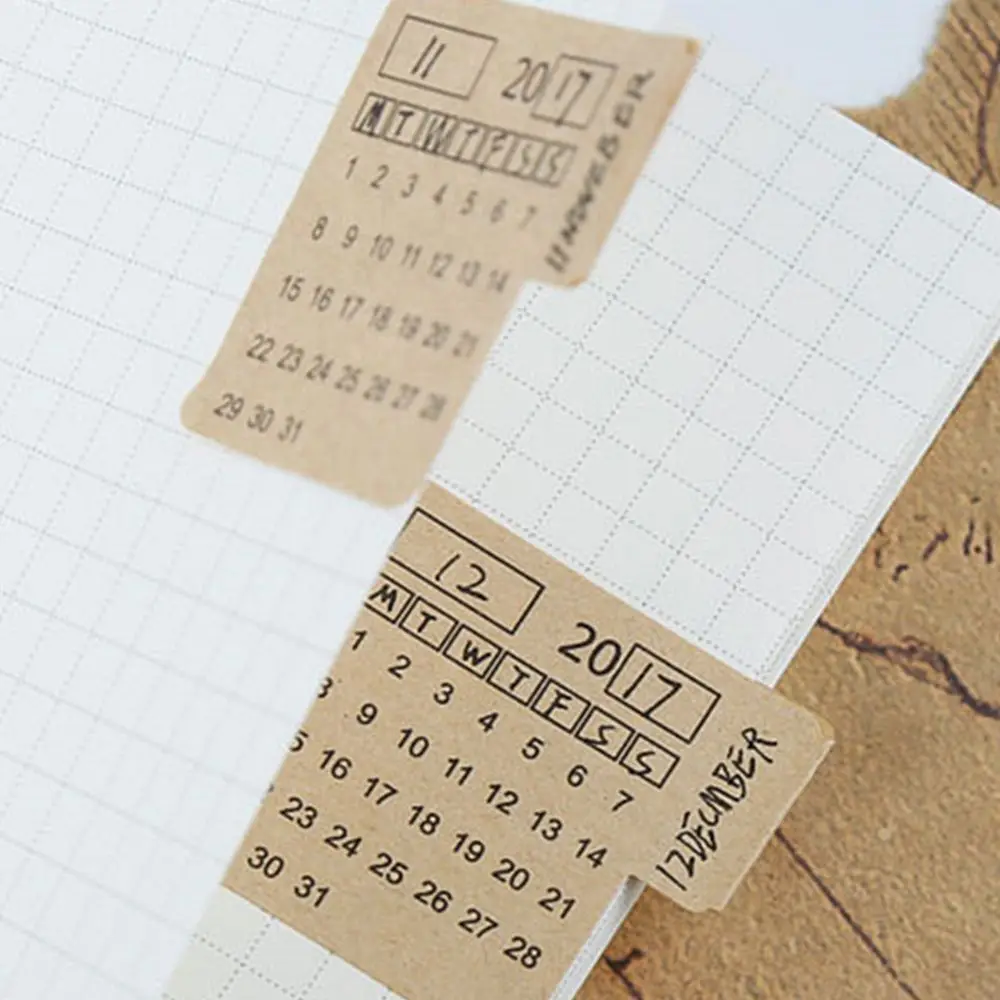 11 2017
M T W T F S S
1 2 3 4 5 6 7
8 9 10 11 12 13 14
15 16 17 18 19 20 21
22 23 24 25 26 27 28
29 30 31
12 2017
M T W T F S S
1 2 3 4 5 6 7
9 10 11 12 13 14
5 16 17 18 19 20 21
23 24 25 26 27 28
30 31
12DECMBER